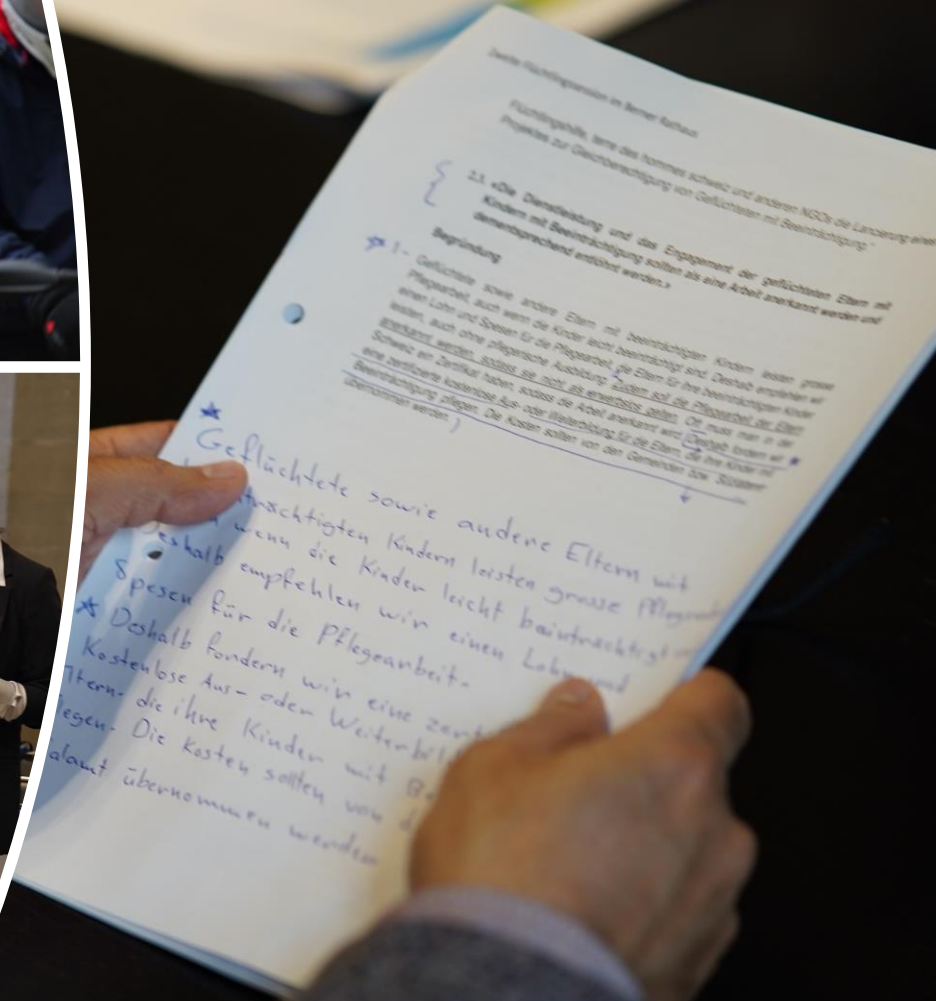 Zweite Flüchtlingssession im Berner Rathaus
Flüchtlingshilfe, terre des hommes schweiz und anderen NGOs die Lancierung eines
Projektes zur Gleichberechtigung von Geflüchteten mit Beeinträchtigung"
«Die Dienstleistung und das Engagement der geflüchteten Eltern mit
Kindern mit Beeinträchtigung sollten als eine Arbeit anerkannt werden und
dementsprechend entlöhnt werden.»
Begründung
1- Geflüchtete sowie andere Eltern mit beeinträchtigten Kindern leisten grosse
Pflegearbeit, auch wenn die Kinder leicht beeinträchtigt sind. Deshalb empfehlen wir
einen Lohn und Spesen für die Pflegearbeit, die Eltern für ihre beeinträchtigten Kinder
leisten, auch ohne pflegerische Ausbildung. Zudem soll die Pflegearbeit der Eltern
anerkannt werden, sodass sie nicht als erwerbslos gelten. Oft muss man in der
Schweiz ein Zertifikat haben, sodass die Arbeit anerkannt wird. Deshalb fordern wir
eine zertifizierte kostenlose Aus- oder Weiterbildung für die Eltern, die ihre Kinder mit
Beeinträchtigung pflegen. Die Kosten sollten von den Gemeinden bzw.
übernommen werden.
Geflüchtete sowie andere Eltern mit
Kindern leisten grosse
wenn die Kinder leicht
Deshalb empfehlen wir einen Lohn und
Spesen für die Pflegearbeit.
Deshalb fordern wir eine
Kostenlose Aus- oder
die ihre Kinder mit
Die Kosten sollten von
übernommen werden